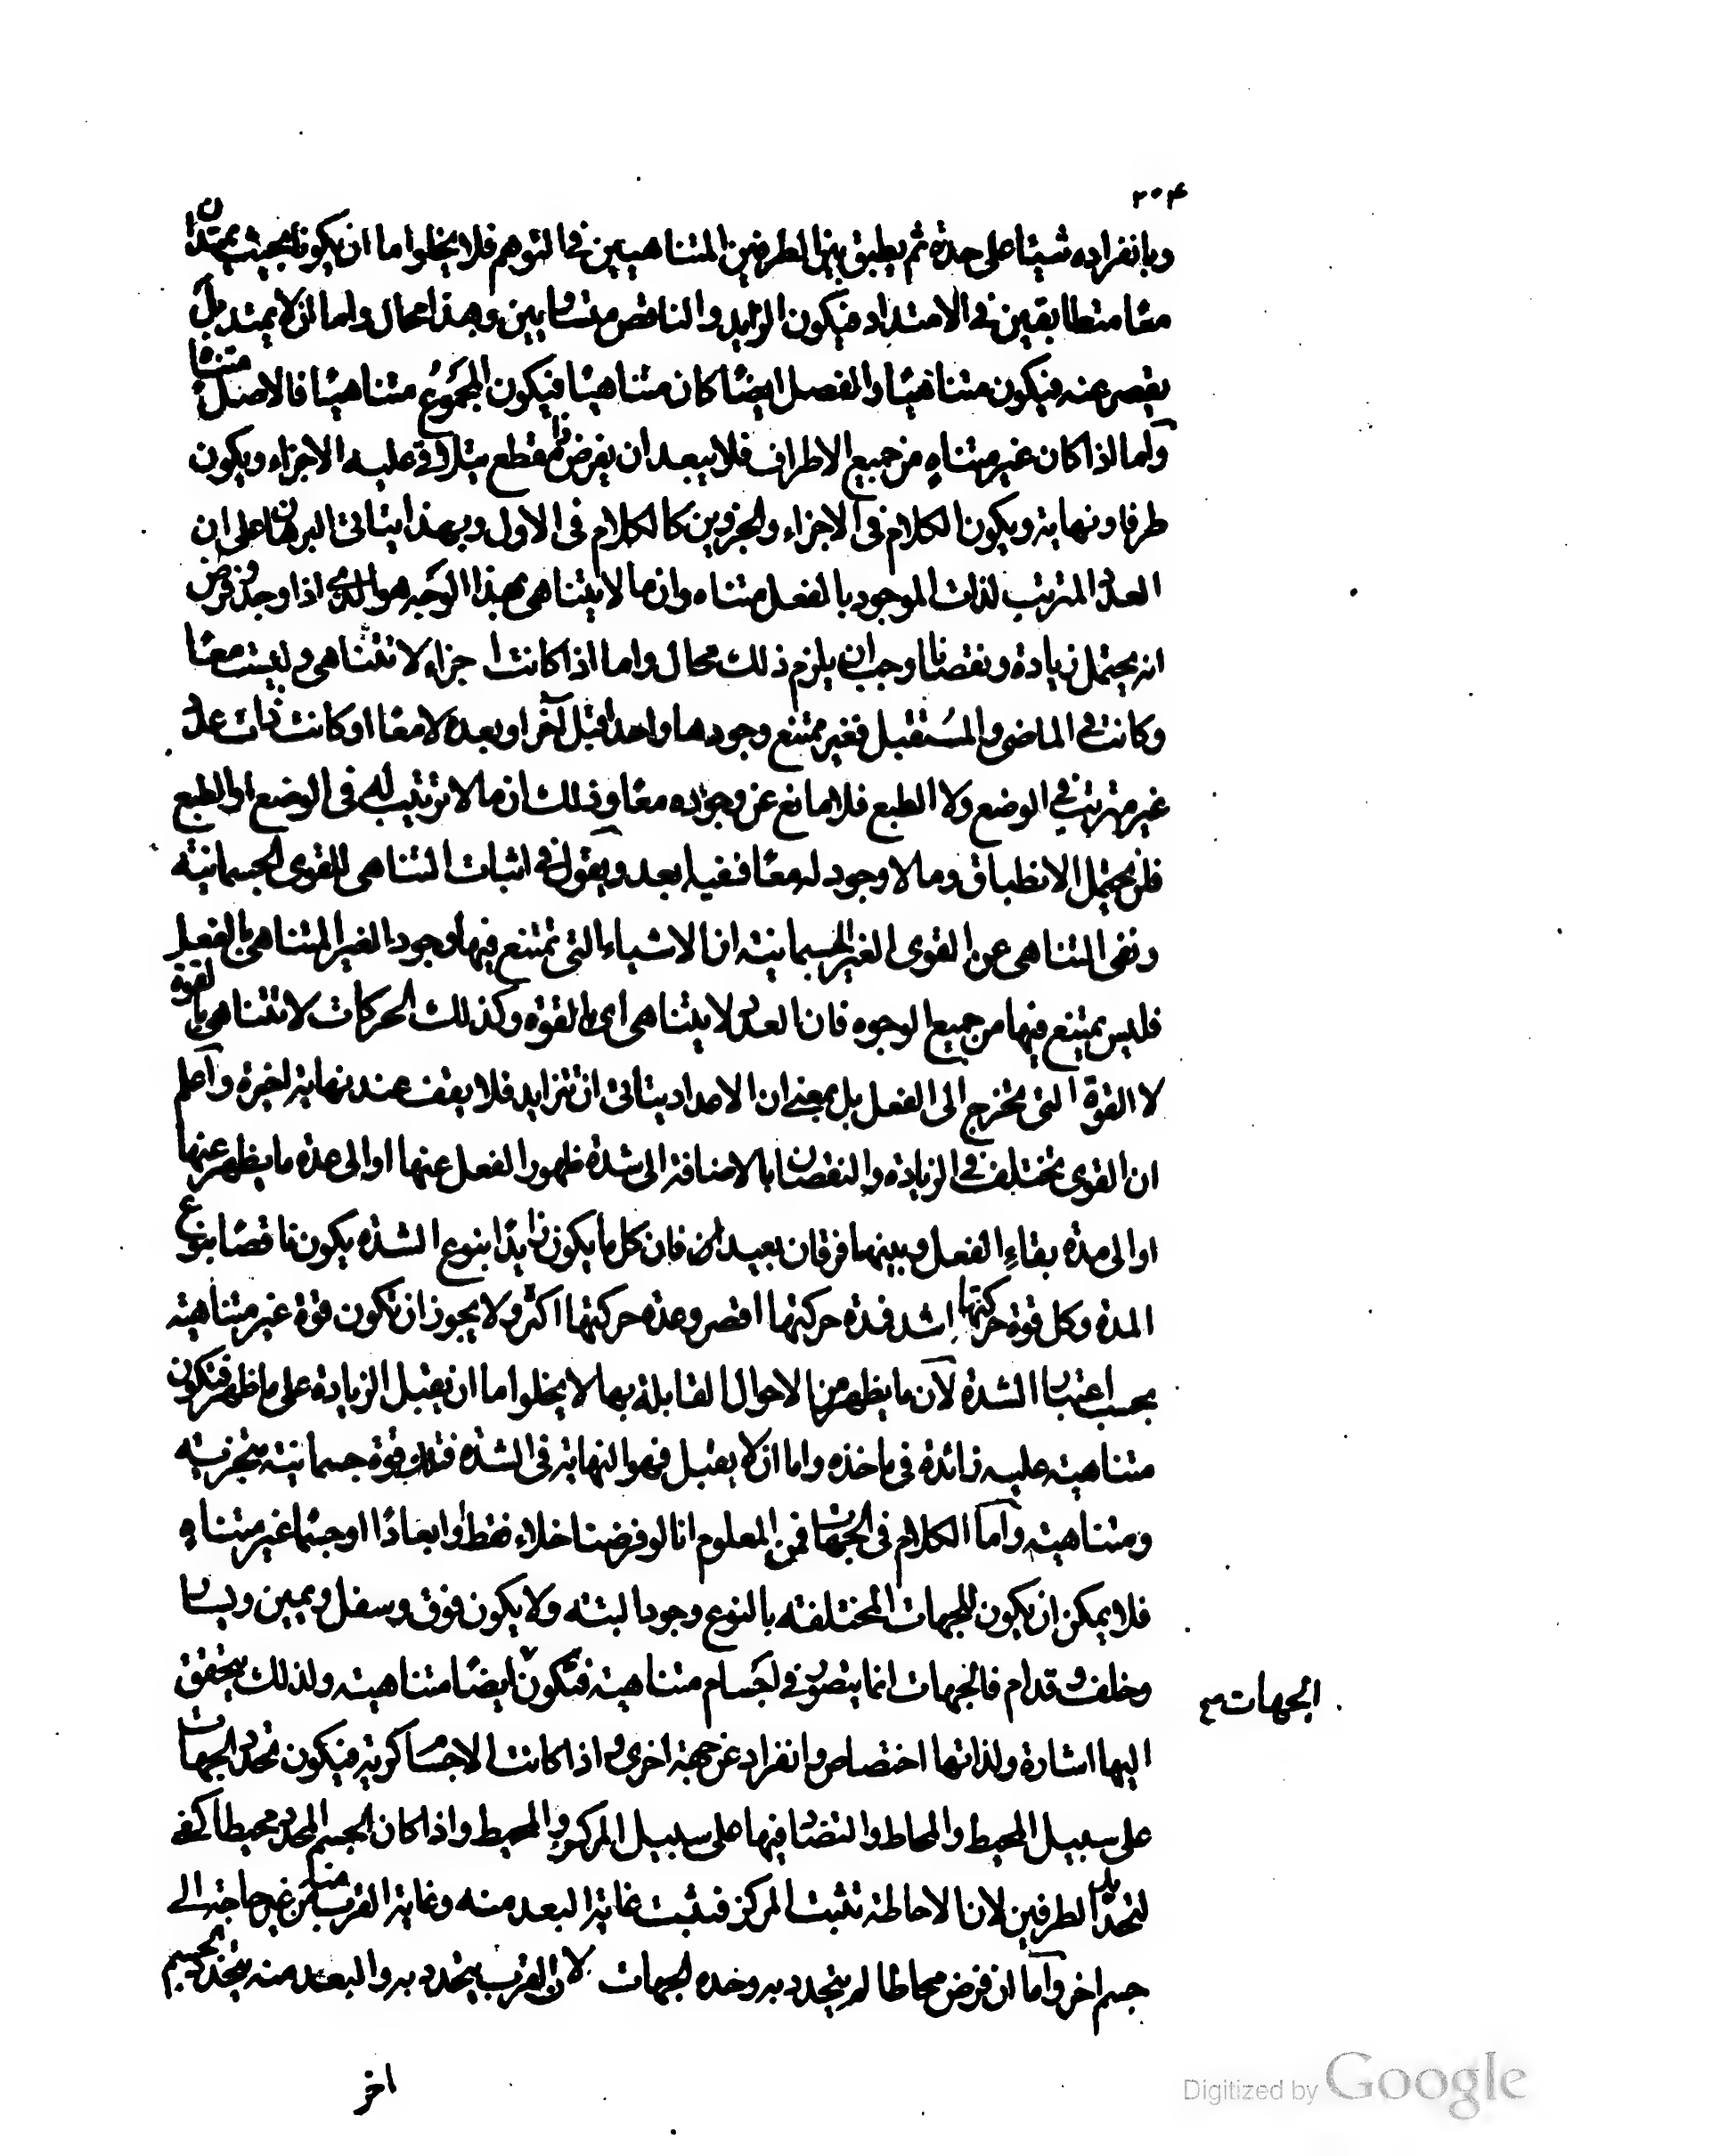 ٢٠۴
وبانفراده شيئا على حدة ثم يطبق بين الطرفين المتناهيين في التوهم فلا يخلو اما ان يكونا بحيث يمتدان
معا متطابقين في الامتداد فيكون الزايد والناقص متساويين وهذا محال واما ان لا يمتد بل
يقصر عنه فيكون متناهيا والفصل ايضا كان متناهيا فيكون المجموع متناهيا فالاصل متناه
واما اذا كان غير متناه من جميع الاطراف فلا يبعد ان يفرض ذا مقطع يتلاقى عليه الاجزاء ويكون
طرفا ونهاية ويكون الكلام في الاجزاء والجزوين كالكلام في الاول وبهذا يتاتى البرهان على ان
العدد المترتب الذات الموجود بالفعل متناه وان ما لا يتناهى بهذا الوجه هو الذي اذا وجد وفرض
انه يحتمل زيادة ونقصانا وجب ان يلزم ذلك محال واما اذا كانت اجزاء لا تتناهى وليست معا
وكانت في الماضي والمستقبل فغير ممتنع وجودها واحدا قبل آخر او بعده لا معا او كانت ذات عدد
غير مترتب في الوضع ولا الطبع فلا مانع عن وجوده معا وذلك ان ما لا ترتيب له في الوضع او الطبع
فلن يحتمل الانطباق وما لا وجود له معا ففيه ابعد ويقول في اثبات التناهى للقوى الجسمانية
ونفى التناهى عن القوى الغير الجسمانية ان الاشياء التى تمتنع فيها وجود الغير المتناهى بالفعل
فليس يمتنع فيها من جميع الوجوه فان العدد لا يتناهى اى بالقوة وكذلك الحركات لا تتناهى بالقوة
لا القوة التى تخرج الى الفعل بل بمعنى ان الاعداد يتاتى ان تتزايد فلا يقف عند نهاية اخيرة واعلم
ان القوى تختلف في الزيادة والنقصان بالاضافة الى شدة ظهور الفعل عنها او الى عدة ما يظهر عنها
او الى مدة بقاء الفعل وبينهما فرقان بعيد ان فان كل ما يكون زايدا بنوع الشدة يكون ناقصا بنوع
المدة وكل قوة حركتها اشد فمدة حركتها اقصر وعدة حركتها اكثر ولا يجوز ان تكون قوة غير متناهية
بحسب اعتبار الشدة لان ما يظهر من الاحوال القابلة بها لا يخلو اما ان يقبل الزيادة على ما ظهر فتكون
متناهية عليه زائدة في ماخذه واما ان لا يقبل فهو النهاية في الشدة فتلك قوة جسمانية متجزية
ومتناهية واما الكلام في الجهات فمن المعلوم انا لو فرضنا خلاء فقط او ابعادا او جسما غير متناه
فلا يمكن ان يكون للجهات المختلفة بالنوع وجود البتة ولا يكون فوق وسفل ويمين ويسار
وخلف وقدام فالجهات انما يتصور في اجسام متناهية فتكون ايضا متناهية ولذلك يتحقق
الجهات
اليها اشارة ولذاتها اختصاص وانفراد عن جهة اخرى و اذا كانت الاجسام كرية فيكون تحدد الجهات
على سبيل المحيط والمحاط والتضاد فيها على سبيل المركز والمحيط واذا كان الجسم المحدد محيطا كفى
لتحديد الطرفين لان الاحاطة تثبت المركز فثبت غاية البعد منه وغاية القرب منه من غير حاجة الى
جسم اخر واما ان فرض محاطا لم يتحدد به وحده الجهات لان القرب يتحدد به والبعد منه يتحدد بجسم
اخر
Digitized by Google